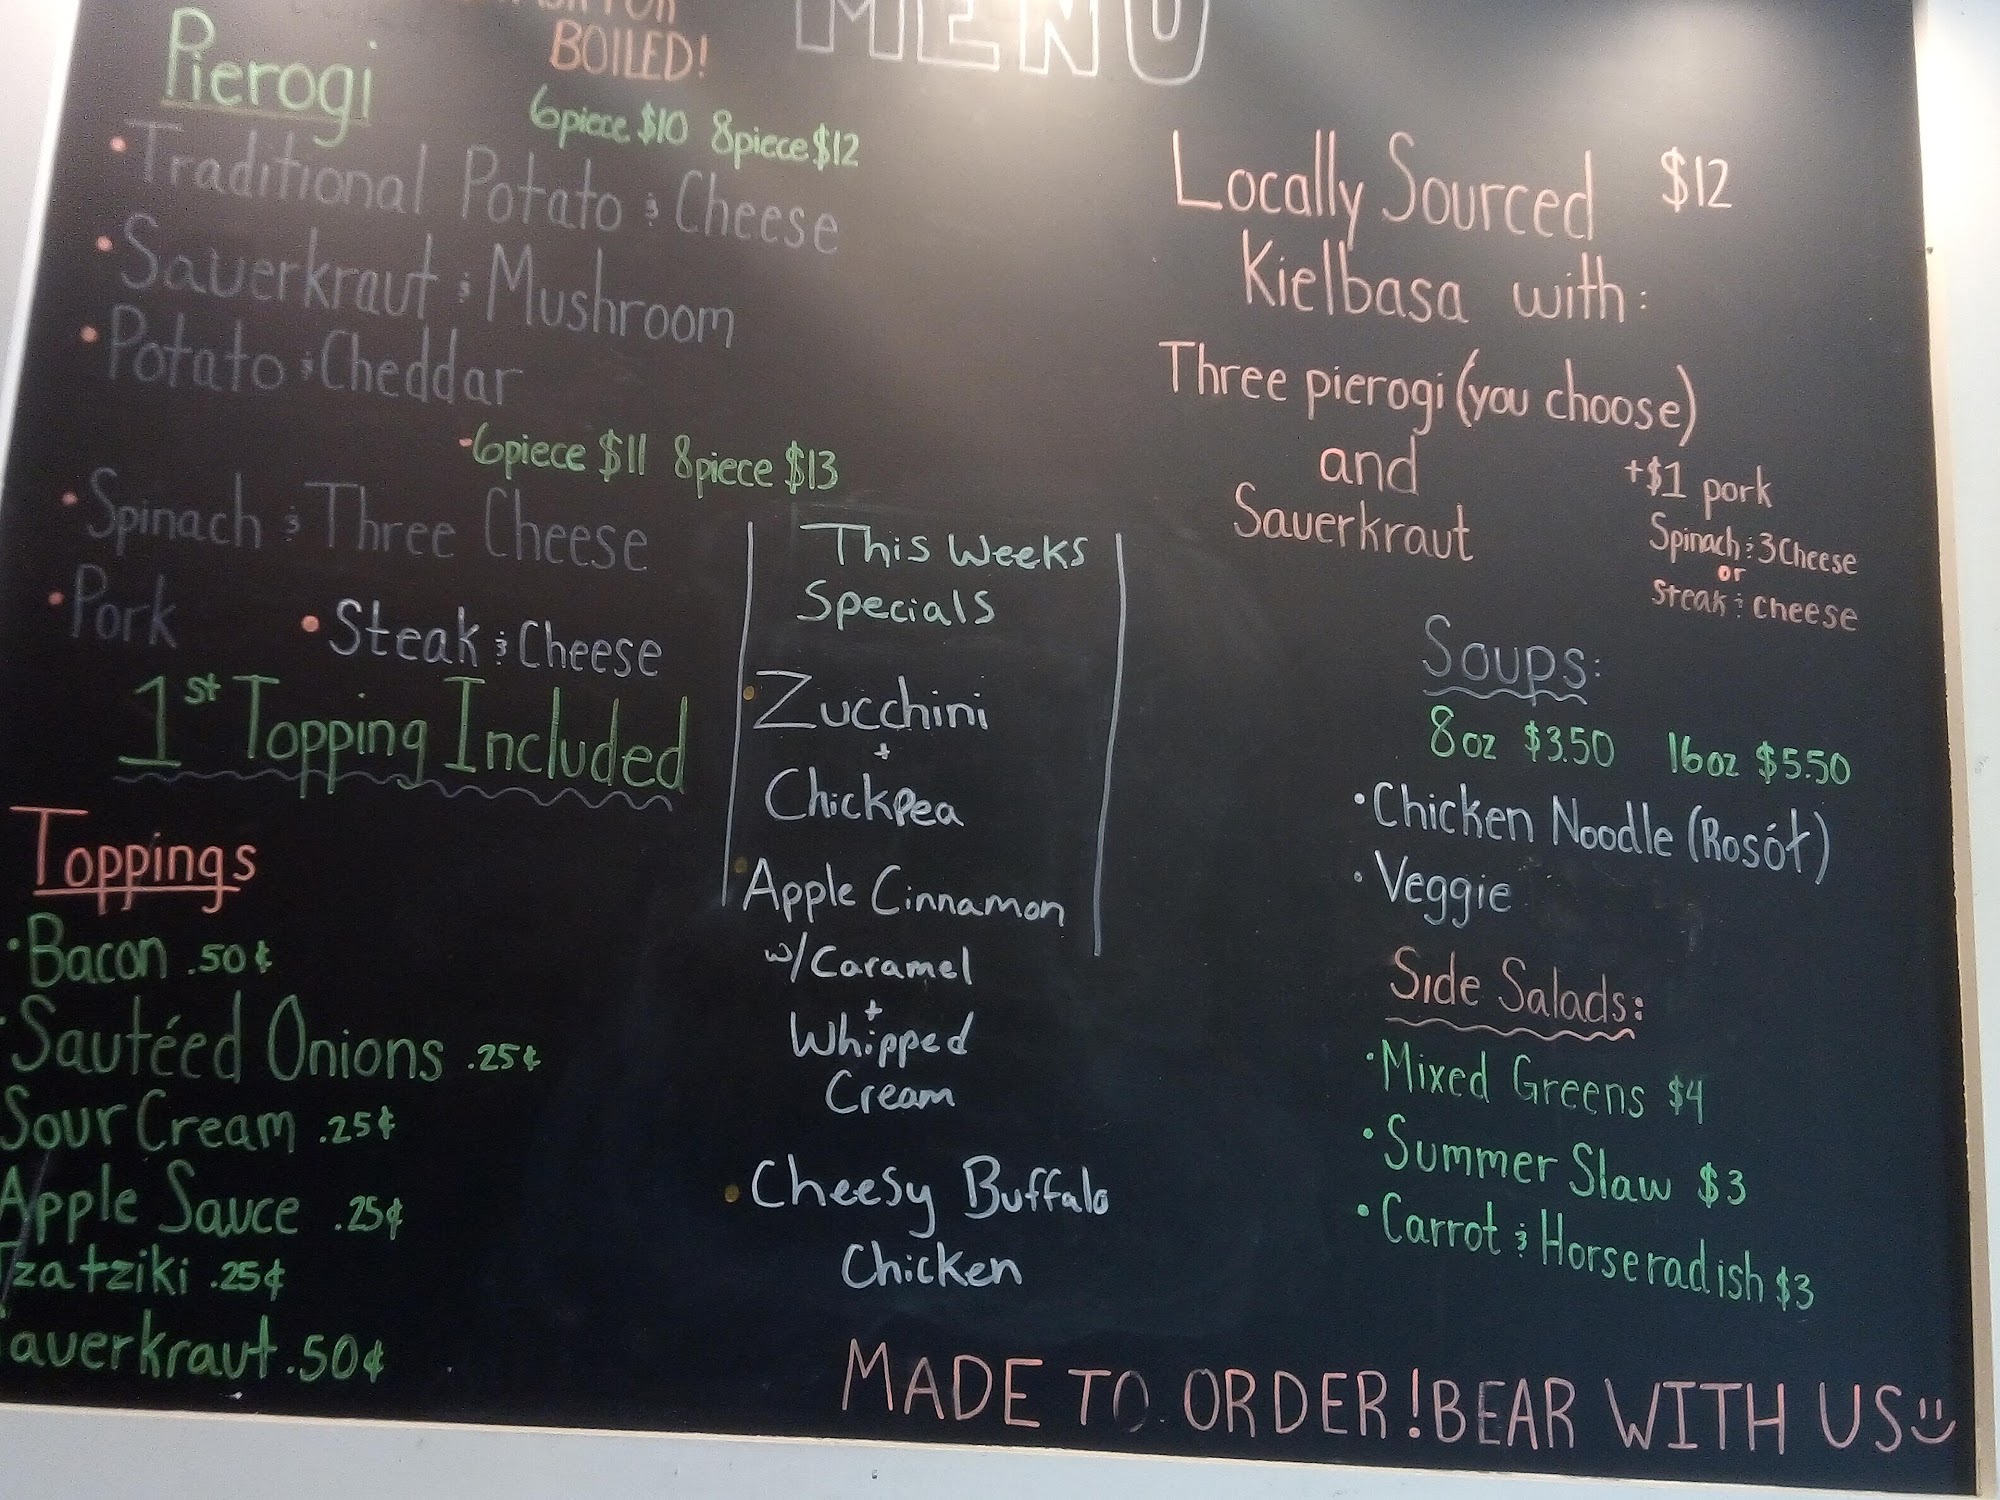 MENU
BOILED!
Pierogi
6piece $10 8piece $12
• Traditional Potato & Cheese
• Sauerkraut & Mushroom
• Potato & Cheddar
-6piece $11 8piece $13
• Spinach & Three Cheese
• Pork • Steak & Cheese
1st Topping Included
Toppings
• Bacon .50¢
• Sautéed Onions .25¢
Sour Cream .25¢
Apple Sauce .25¢
Tzatziki .25¢
Sauerkraut .50¢
This Weeks
Specials
• Zucchini
+
Chickpea
• Apple Cinnamon
w/Caramel
+
Whipped
Cream
• Cheesy Buffalo
Chicken
Locally Sourced $12
Kielbasa with:
Three pierogi (you choose)
and
Sauerkraut
+$1 pork
Spinach & 3 Cheese
or
Steak & Cheese
Soups:
8oz $3.50 16oz $5.50
• Chicken Noodle (Rosół)
• Veggie
Side Salads:
• Mixed Greens $4
• Summer Slaw $3
• Carrot & Horseradish $3
MADE TO ORDER! BEAR WITH US